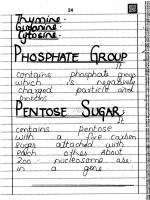 24
Thymine.
Guanine.
Cytosine.
PHOSPHATE GROUP
It
contains phosphate group
which is negatively
charged particle and
PENTOSE SUGAR:
It
contains pentose
with a five carbon
sugar attached with
each other. About
200 nucleosome are
in a gene.